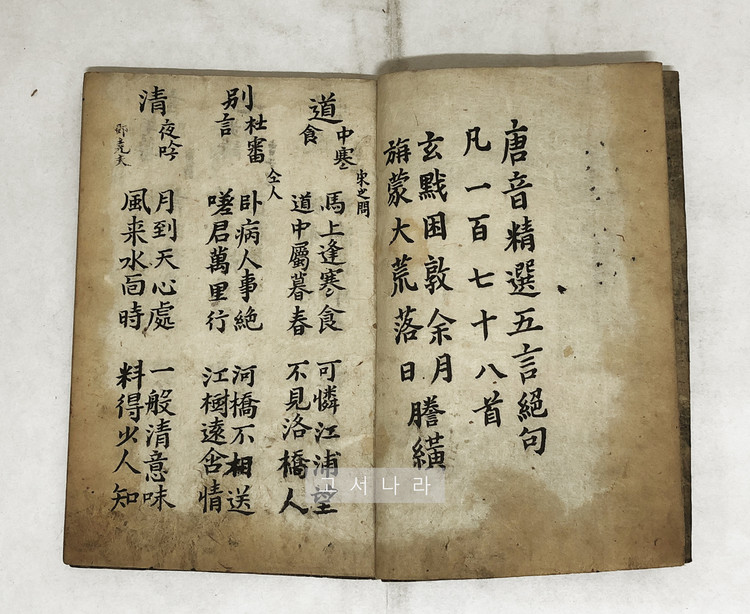 唐音精選五言絕句
凡一百七十八首
玄黓困敦余月
旃蒙大荒落日
謄
道中寒食
宋之問
馬上逢寒食 可憐江浦望
道中屬暮春 不見洛橋人
別杜審言
仝人
卧病人事絶 河橋不相送
嗟君萬里行 江樹遠含情
清夜吟
邵堯夫
月到天心處 一般清意味
風来水面時 料得少人知
고서나라